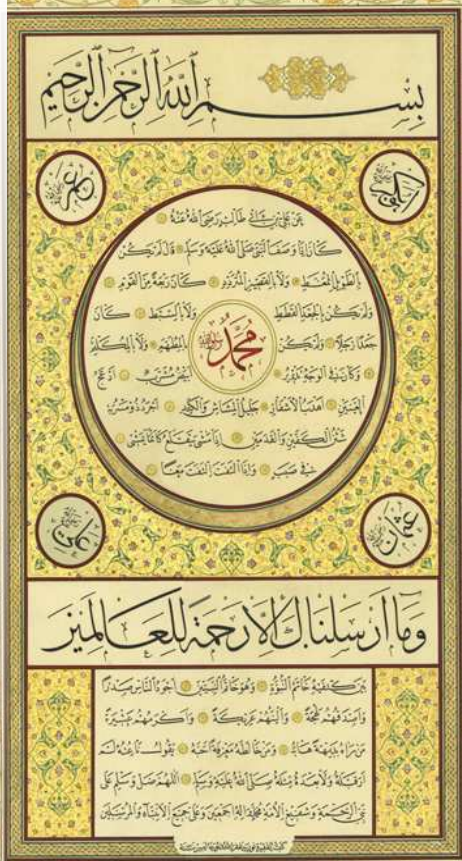 بسم الله الرحمن الرحيم
ابوبكر
عمر
عن علي بن ابي طالب رضي الله عنه
كان اذا وصف النبي صلى الله عليه وسلم قال لم يكن
بالطويل الممغط ولا بالقصير المتردد كان ربعة من القوم
ولم يكن بالجعد القطط ولا بالسبط كان
جعدا رجلا ولم يكن بالمطهم ولا بالمكلثم
محمد
وكان في الوجه تدوير ابيض مشرب ادعج
العينين اهدب الاشفار جليل المشاش والكتد اجرد ذو مسربة
شثن الكفين والقدمين اذا مشى تقلع كانما يمشي
في صبب واذا التفت التفت معا
عثمان
علي
وما ارسلناك الا رحمة للعالمين
بين كتفيه خاتم النبوة وهو خاتم النبيين اجود الناس صدرا
واصدقهم لهجة والينهم عريكة واكرمهم عشيرة
من رآه بديهة هابه ومن خالطه معرفة احبه يقول ناعته لم
ار قبله ولا بعده مثله صلى الله عليه وسلم اللهم صل وسلم على
نبي الرحمة وشفيع الامة محمد وآله اجمعين وعلى جميع الانبياء والمرسلين